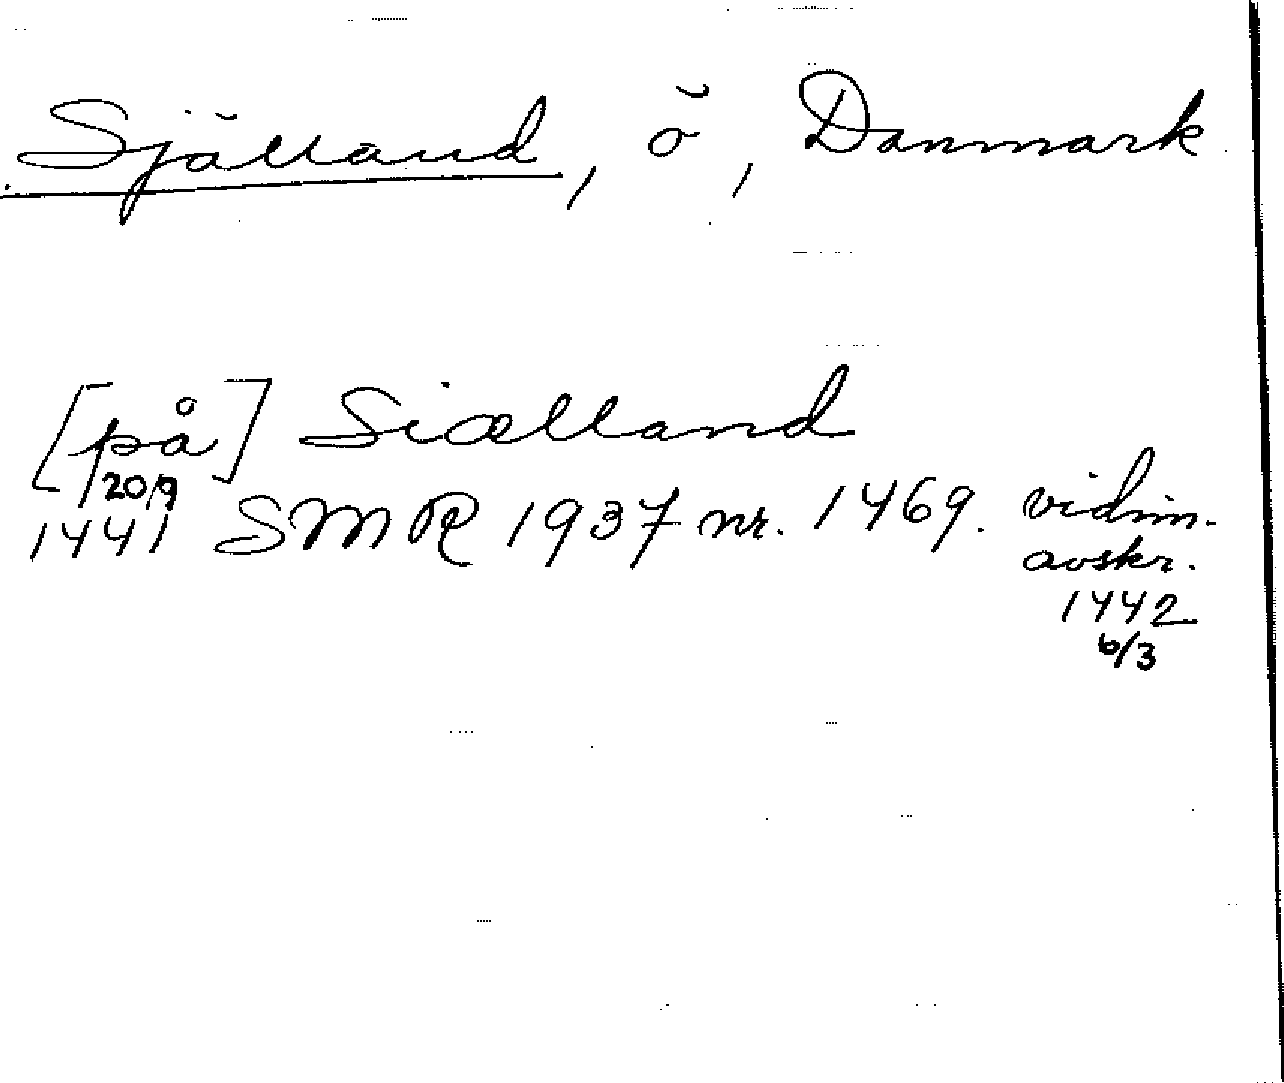 Själland, ö, Danmark
[på] Siælland
20/9
1441 SMR 1937 nr. 1469. vidim.
avskr.
1442
6/3